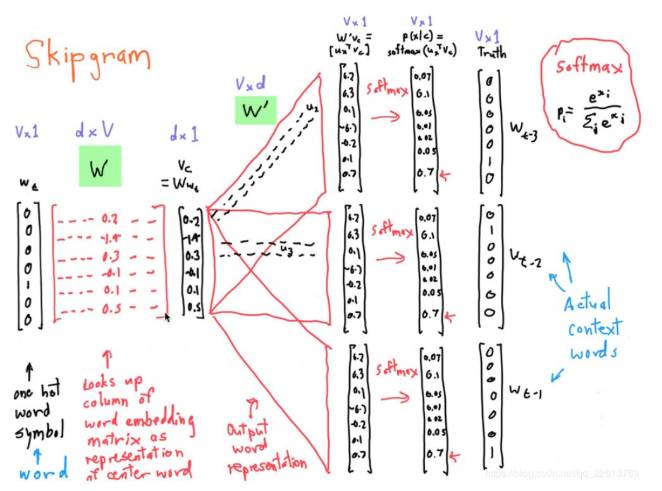 Skipgram
V×1
d×V
W
w_t
0
0
0
0
1
0
0
---- 0.2 - -
---- -1.4 - -
---- 0.3 - -
---- -0.1 - -
---- 0.1 - -
---- 0.5 - -
d×1
V_c
= Ww_t
0.2
-1.4
0.3
-0.1
0.1
0.5
V×d
W'
u_2
u_3
V×1
W'v_c =
[u_x^T v_c]
V×1
p(x|c) =
softmax(u_x^T v_c)
V×1
Truth
softmax
p_i = e^{x_i} / Σ_j e^{x_i}
softmax
0.3
0.1
-0.2
0.1
0.7
0.07
0.1
0.05
0.01
0.02
0.05
0.7
0
0
0
0
0
1
0
w_t-3
softmax
0.3
0.1
-0.2
0.1
0.7
0.07
0.1
0.05
0.01
0.02
0.05
0.7
0
1
0
0
0
0
0
w_t-2
softmax
0.3
0.1
-0.2
0.1
0.7
0.07
0.1
0.05
0.01
0.02
0.05
0.7
0
0
0
0
0
0
1
w_t-1
Actual
context
words
one hot
word
symbol
word
Looks up
column of
word embedding
matrix as
representation
of center word
Output
word
representation